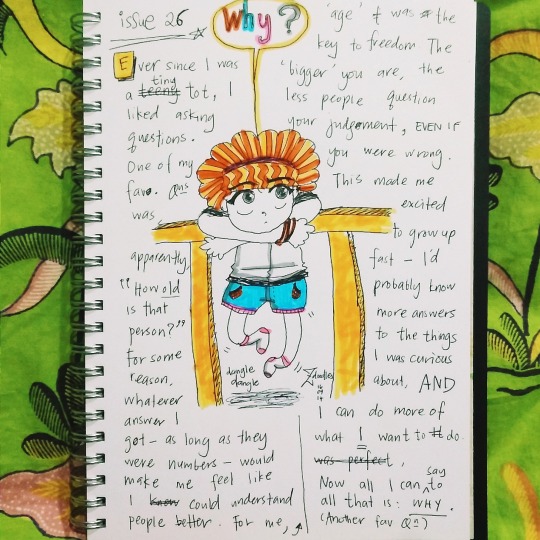 issue 26
Why?
Ever since I was
a teeny tiny tot, I
liked asking
questions.
One of my
fav. Qns
was,
apparently,
"How old
is that
person?"
For some
reason,
whatever
answer I
got – as long as they
were numbers – would
make me feel like
I know could understand
people better. For me,
'age' it was the
key to freedom The
'bigger' you are, the
less people question
your judgement, EVEN IF
you were wrong.
This made me
excited
to grow up
fast – I'd
probably know
more answers
to the things
I was curious
about, AND
I can do more of
what I want to do.
was perfect,
Now all I can say to
all that is: WHY.
(Another fav Qn)
dangle
dangle
doodles